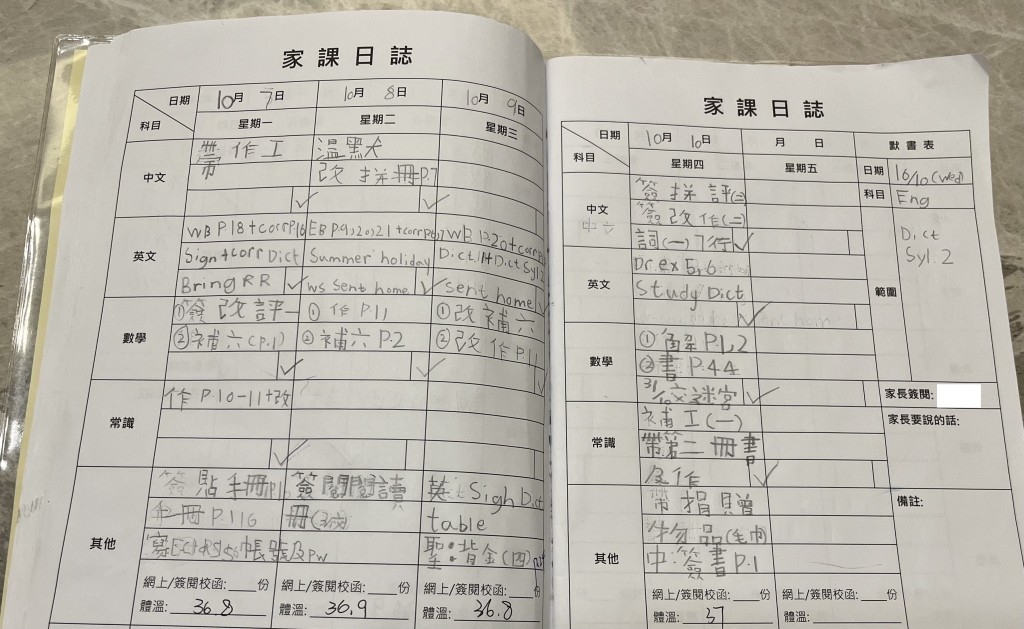 家課日誌
日期 10月 7日 10月 8日 10月 9日
科目 星期一 星期二 星期三
中文
帶作工 溫默犬
改抹冊P.7
英文
WB P.18+corrP.16 EB P.9,20,21+corrP. WB P.20+corr
Sign+corr Dict Summer holiday Dict.1+Dict Syl.2
Bring RR ws sent home sent home
數學
①簽改評一 ①作P.11 ①改補六
②補六(P.1) ②補六P.2 ②改作P.11
常識
作P.10-11+改
其他
簽貼手冊 簽閱閱讀 英 Sigh Dict
手冊P.116 冊 table
寫 帳號及PW 聖:背金(四)
網上/簽閱校函:____份 網上/簽閱校函:____份 網上/簽閱校函:____份
體溫: 36.8 體溫: 36.9 體溫: 36.8
家課日誌
日期 10月 10日 月 日 默書表
科目 星期四 星期五 日期 16/10(wed)
科目 Eng
中文
簽抹評(二)
簽改作(二)
詞(一)7行
範圍 Dict Syl.2
英文
Dr. ex 5,6
Study Dict
數學
①解P.1,2
②書P.44
31/10交迷宮
家長簽閱:
常識
補工(一)
帶第二冊書
及作
家長要說的話:
其他
帶捐贈
物品(毛巾)
中:簽書P.1
備註:
網上/簽閱校函:____份 網上/簽閱校函:____份
體溫: 37 體溫: